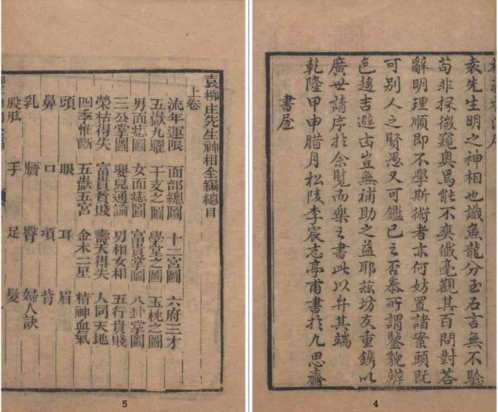 袁先生明之神相也識魚龍分玉石言無不驗
苟非探微窺奧焉能不爽纖毫觀其百問對答
辭明理順即不學斯術者亦何妨置諸案頭既
可別人之賢愚又可鑑已之否泰所謂鑒貌辨
色趨吉避凶豈無補助之益耶茲坊友重鐫以
廣世請序於余覽而樂之書此以弁其端
乾隆甲申腊月松陵李宸志亭甫書於九思齋
書屋
4
袁柳庄先生神相全編總目
上卷
流年運限 面部總圖 十二宮圖 六府三才
五嶽九曜 干支之圖 學堂之圖 玉枕之圖
男面痣圖 女面痣圖 富貴掌圖 八卦掌圖
三公掌圖 嬰兒通論 男相女相 五行貴賤
榮枯得失 富貴貧賤 壽夭得失 人同天地
四季惟斷 五嶽五宮 金木二星 精神血氣
頭 眼 耳 眉
鼻 口 項 背
乳 臍 臀 婦人訣
股肱 手 足 髮
5